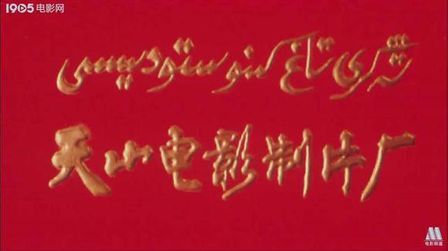 1905电影网
تەڭرىتاغ كىنو ستۇدىيىسى
天山电影制片厂